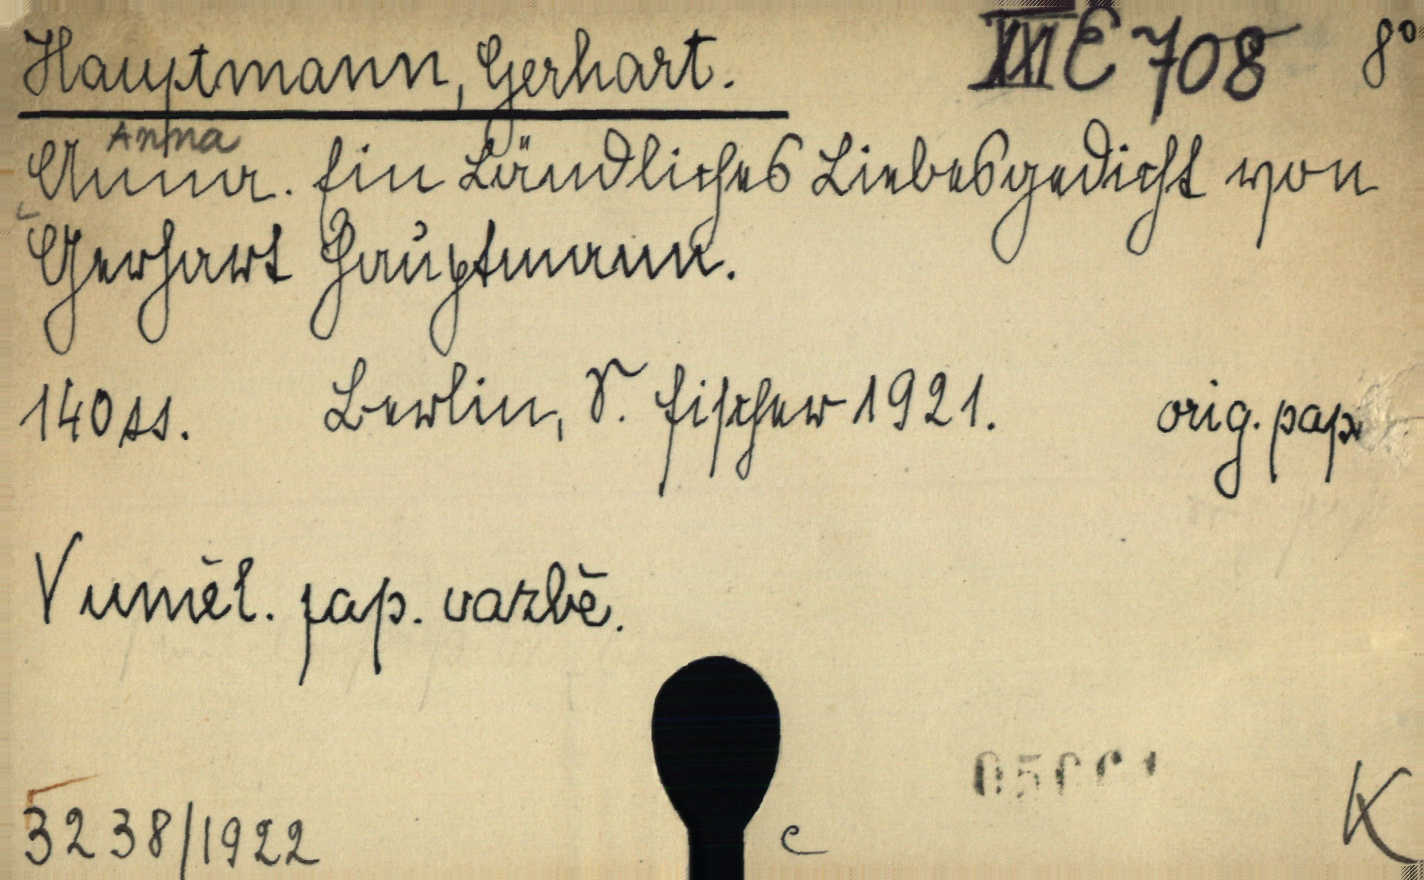 Hauptmann, Gerhart. III E 708 8°
Anna
Anna. Ein Ländliches Liebesgedicht von
Gerhart Hauptmann.
140 ss. Berlin, S. Fischer 1921. orig. pap.
V uměl. pap. vazbě.
3238/1922 c K